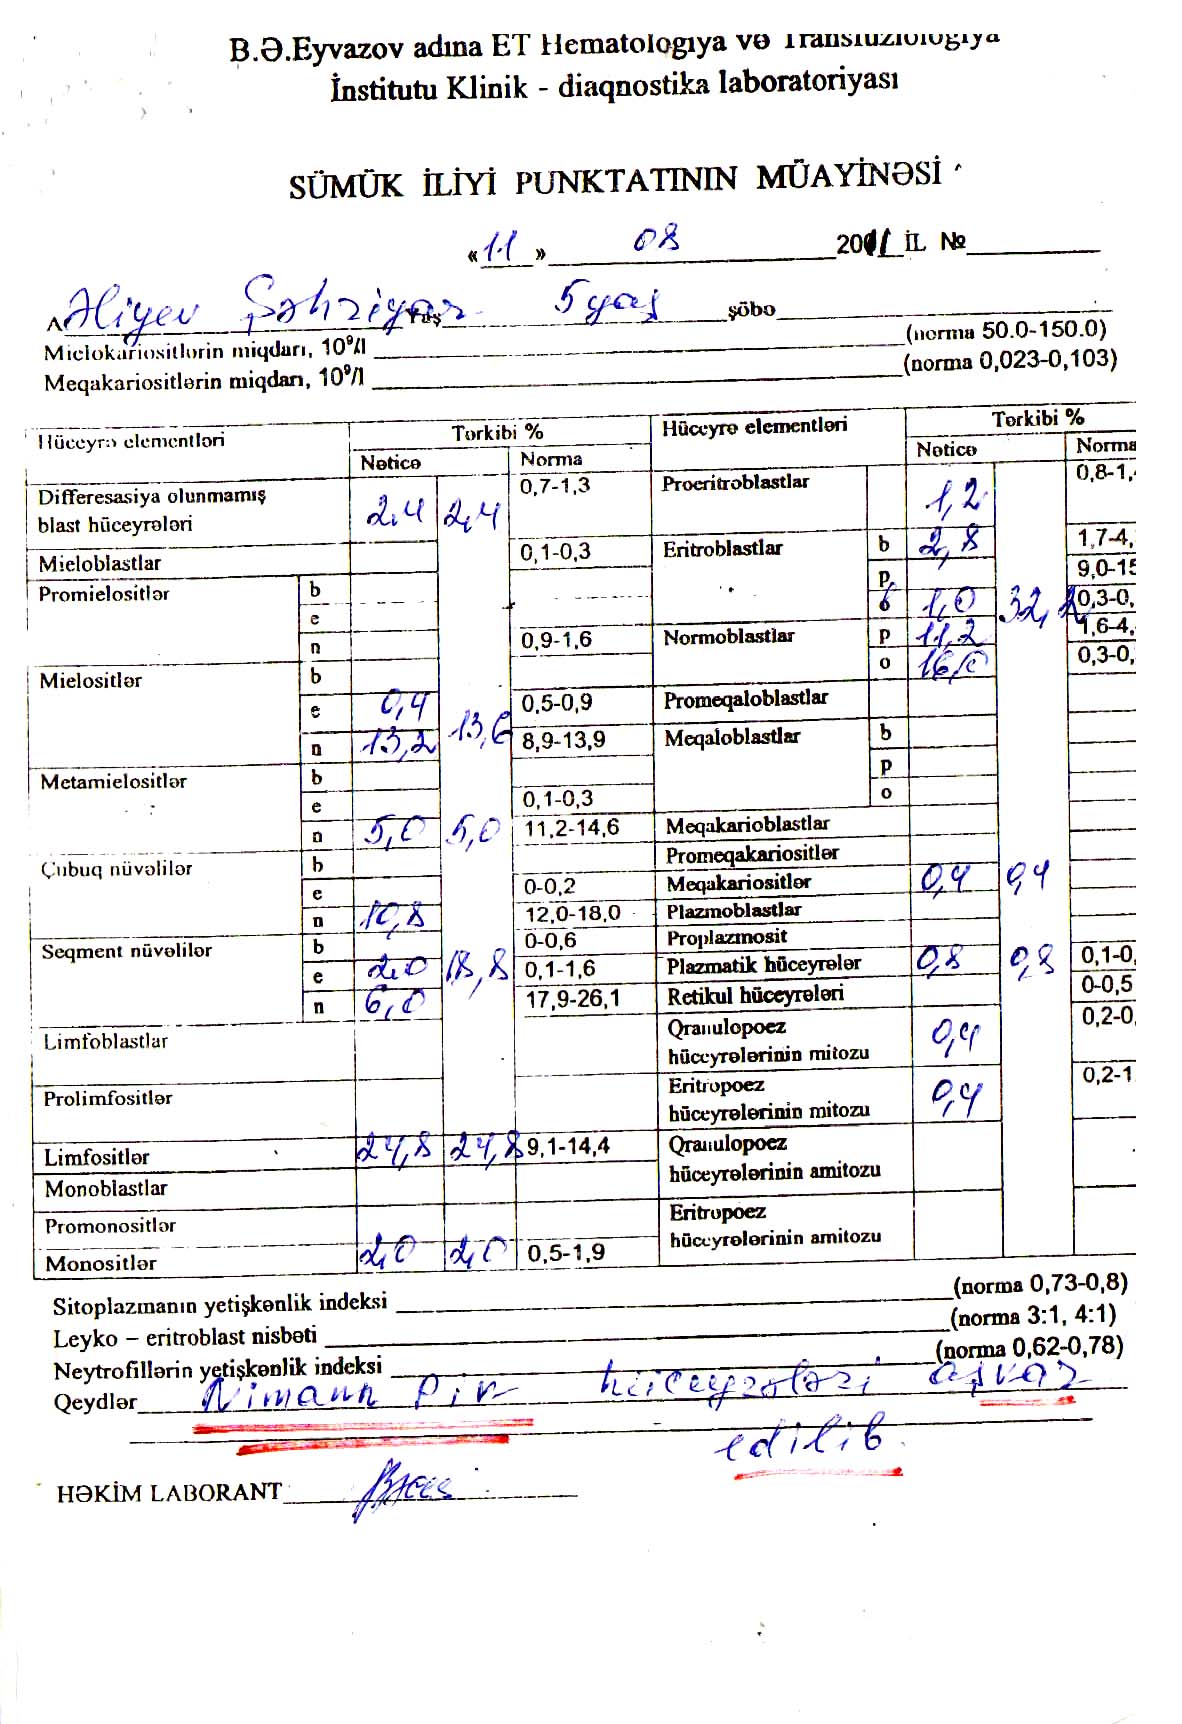 B.Ə.Eyvazov adına ET Hematologiya və Transfuziologiya
İnstitutu Klinik - diaqnostika laboratoriyası
SÜMÜK İLİYİ PUNKTATININ MÜAYİNƏSİ
«11» 08 2011 İL №
A Əliyev Şəhriyar Yaş 5 yaş şöbə
Mielokariositlərin miqdarı, 10⁹/l (norma 50.0-150.0)
Meqakariositlərin miqdarı, 10⁹/l (norma 0,023-0,103)
Hüceyrə elementləri Tərkibi % Hüceyrə elementləri Tərkibi %
Nəticə Norma Nəticə Norma
Differesasiya olunmamış blast hüceyrələri 2,4 2,4 0,7-1,3 Proeritroblastlar 1,2 0,8-1,
Mieloblastlar 0,1-0,3 Eritroblastlar b 2,8 1,7-4,
Promielositlər b p 9,0-15
e 6 1,0 32,2 0,3-0,
n 0,9-1,6 Normoblastlar p 11,2 1,6-4,
Mielositlər b o 16,0 0,3-0,
e 0,4 13,6 0,5-0,9 Promeqaloblastlar
n 13,2 8,9-13,9 Meqaloblastlar b
Metamielositlər b p
e 0,1-0,3 o
n 5,0 5,0 11,2-14,6 Meqakarioblastlar
Çubuq nüvəlilər b Promeqakariositlər
e 0-0,2 Meqakariositlər 0,4 0,4
n 10,8 12,0-18,0 Plazmoblastlar
Seqment nüvəlilər b 0-0,6 Proplazmosit
e 2,0 18,8 0,1-1,6 Plazmatik hüceyrələr 0,8 0,8 0,1-0,
n 6,0 17,9-26,1 Retikul hüceyrələri 0-0,5
Limfoblastlar Qranulopoez hüceyrələrinin mitozu 0,4 0,2-0,
Prolimfositlər Eritropoez hüceyrələrinin mitozu 0,4 0,2-1
Limfositlər 24,8 24,8 9,1-14,4 Qranulopoez hüceyrələrinin amitozu
Monoblastlar
Promonositlər Eritropoez hüceyrələrinin amitozu
Monositlər 2,0 2,0 0,5-1,9
Sitoplazmanın yetişkənlik indeksi (norma 0,73-0,8)
Leyko – eritroblast nisbəti (norma 3:1, 4:1)
Neytrofillərin yetişkənlik indeksi (norma 0,62-0,78)
Qeydlər Nimann Pik hüceyrələri aşkar
edilib.
HƏKİM LABORANT